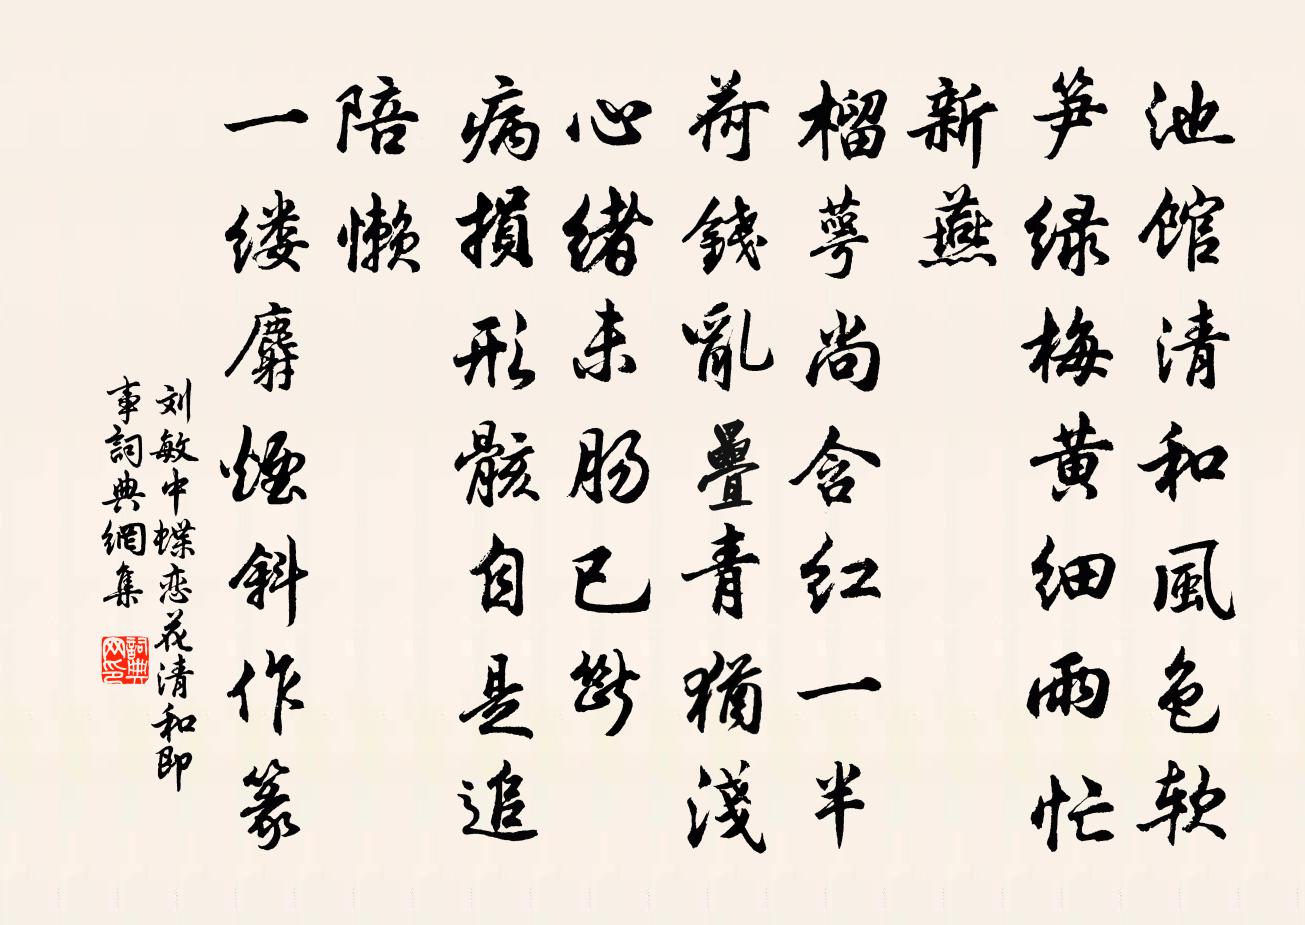 池馆清和風色软
笋绿梅黄细雨忙
新燕
榴萼尚含红一半
荷錢亂疊青猶淺
心绪未肠已斷
病損形骸自是追
陪懒
一缕麝煙斜作篆
刘敏中蝶恋花清和即
事詞典網集
詞典
网印